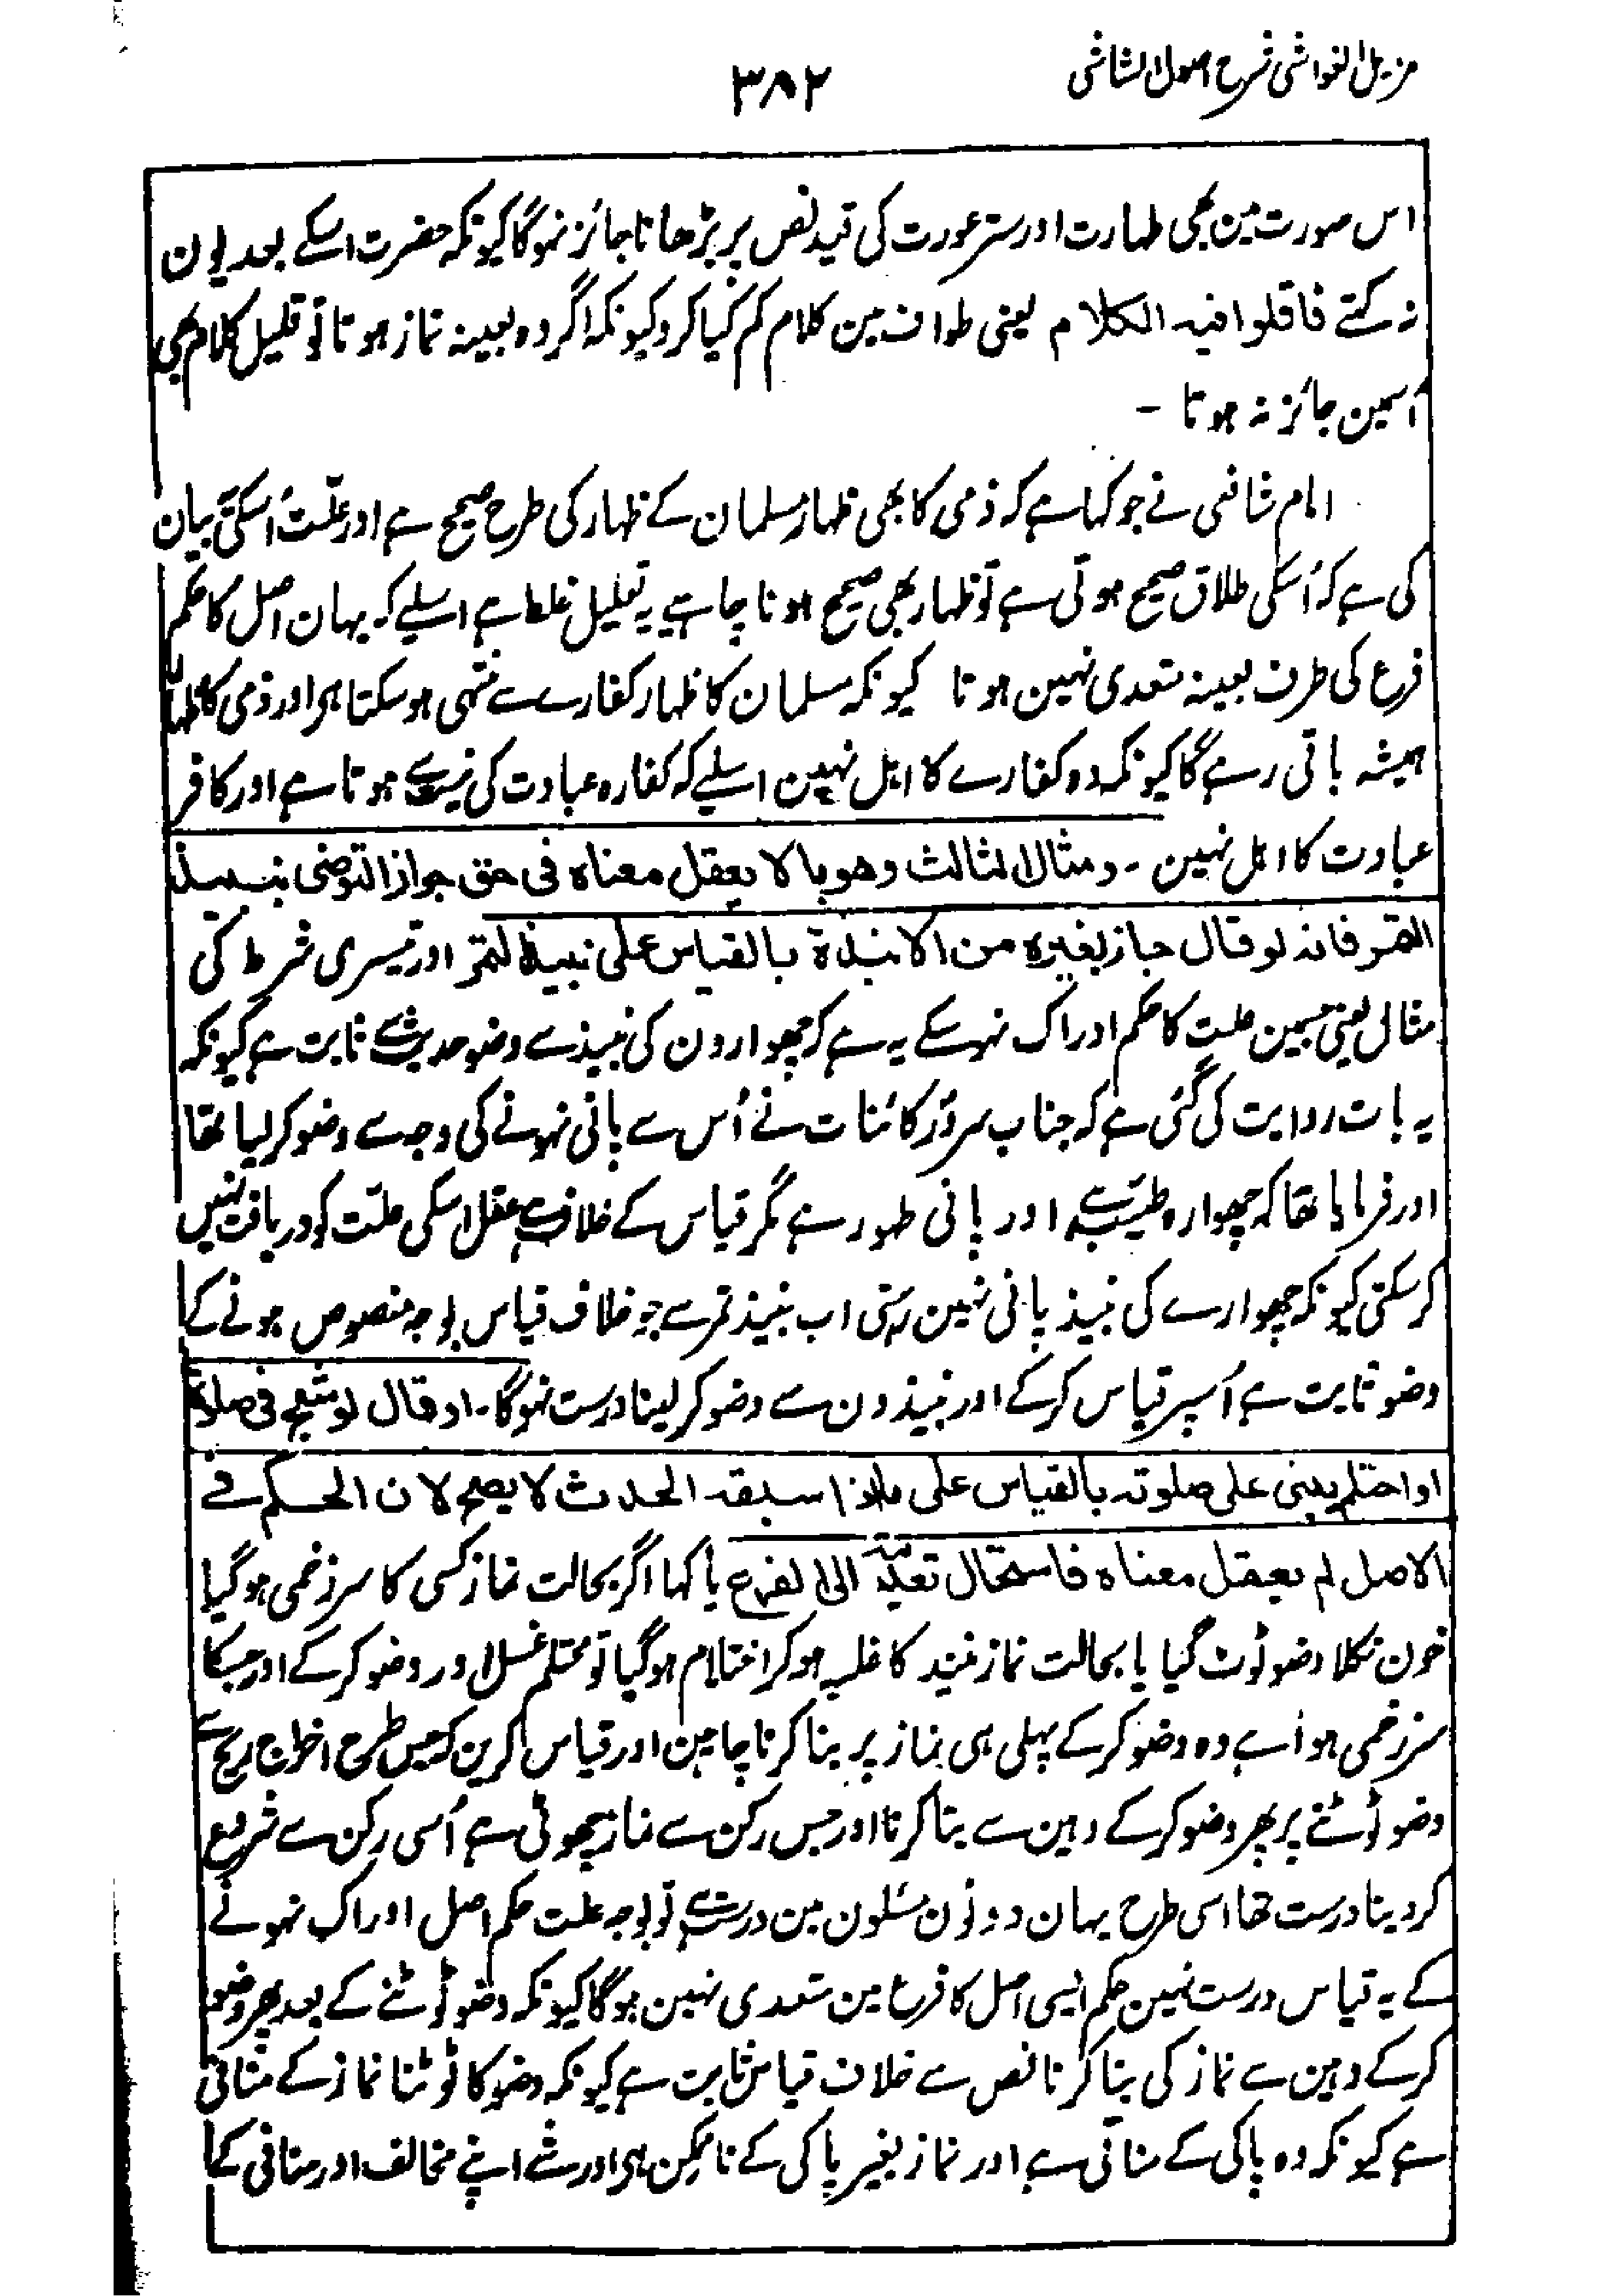 مزیل الغواشی شرح اصول الشاشی
۳۸۲
اس صورت مین بھی طہارت اور ستر عورت کی قید نص پر بڑھانا جائز نہوگا کیونکہ حضرت اسکے بعد یون
نہ کہتے فاقلوا فیہ الکلام یعنی طواف مین کلام کم کیا کرو کیونکہ اگر وہ بعینہ نماز ہوتا تو قلیل کلام بھی
اُسمین جائز نہ ہوتا -
امام شافعی نے جو کہا ہے کہ ذمی کا بھی ظہار مسلمان کے ظہار کی طرح صحیح ہے اور علّت اُسکی یہ بیان
کی ہے کہ اُسکی طلاق صحیح ہوتی ہے تو ظہار بھی صحیح ہونا چاہیے یہ تعلیل غلط ہے اسلیے کہ یہان اصل کا حکم
فرع کی طرف بعینہ متعدی نہین ہوتا کیونکہ مسلمان کا ظہار کفارے سے منتہی ہوسکتا ہر اور ذمی کا ظہار
ہمیشہ باقی رہے گا کیونکہ وہ کفارے کا اہل نہین اسلیے کہ کفارہ عبادت کی نیت سے ہوتا ہے اور کافر
عبادت کا اہل نہین - ومثال الثالث وهو ما لا یعقل معناه فی حق جواز التوضی بنبیذ
التمر فانہ لو قال جاز بغیره من الانبذة بالقیاس علی نبیذ التمر اور تیسری شرط کی
مثال یعنی جسمین علت کا حکم ادراک نہوسکے یہ ہے کہ چھوارون کی نبیذ سے وضو حدیث سے ثابت ہے کیونکہ
یہ بات روایت کی گئی ہے کہ جناب سرورِ کائنات نے اُس سے پانی نہونے کی وجہ سے وضو کرلیا تھا
اور فرمایا تھا کہ چھوارہ طیّب ہے اور پانی طہور ہے مگر قیاس کے خلاف ہے عقل اسکی علّت کو دریافت نہیں
کرسکتی کیونکہ چھوارے کی نبیذ پانی نہین رہتی اب نبیذ تمر سے جو خلاف قیاس بوجہ منصوص ہونے کے
وضو ثابت ہے اُسپر قیاس کرکے اور نبیذون سے وضو کرلینا درست نہوگا - او قال لو شج فی صلوته
او احتلم یبنی علی صلوتہ بالقیاس علی ما اذا سبقہ الحدث لا یصح لان الحکم فی
الاصل لم یعقل معناه فاستحال تعدیتہ الی الفرع یا کہا اگر بحالت نماز کسی کا سر زخمی ہوگیا
خون نکلا وضو ٹوٹ گیا یا بحالت نماز نیند کا غلبہ ہوکر احتلام ہوگیا تو محتلم غسل اور وضو کرکے اور جسکا
سر زخمی ہوا ہے وہ وضو کرکے پہلی ہی نماز پر بنا کرنا چاہین اور قیاس کرین کہ جس طرح اخراج ریح سے
وضو ٹوٹنے پر پھر وضو کرکے وہین سے بنا کرنا اور جس رکن سے نماز چھوٹی ہے اُسی رکن سے شروع
کردینا درست تھا اسی طرح یہان دونون مسئلون مین درست ہے تو بوجہ علت حکم اصل ادراک نہونے
کے یہ قیاس درست نہین حکم ایسی اصل کا فرع مین متعدی نہین ہوگا کیونکہ وضو ٹوٹنے کے بعد پھر وضو
کرکے وہین سے نماز کی بنا کرنا نص سے خلاف قیاس ثابت ہے کیونکہ وضو کا ٹوٹنا نماز کے منافی
ہے کیونکہ وہ پاکی کے منافی ہے اور نماز بغیر پاکی کے ناممکن ہر اور شے اپنے مخالف اور منافی کے